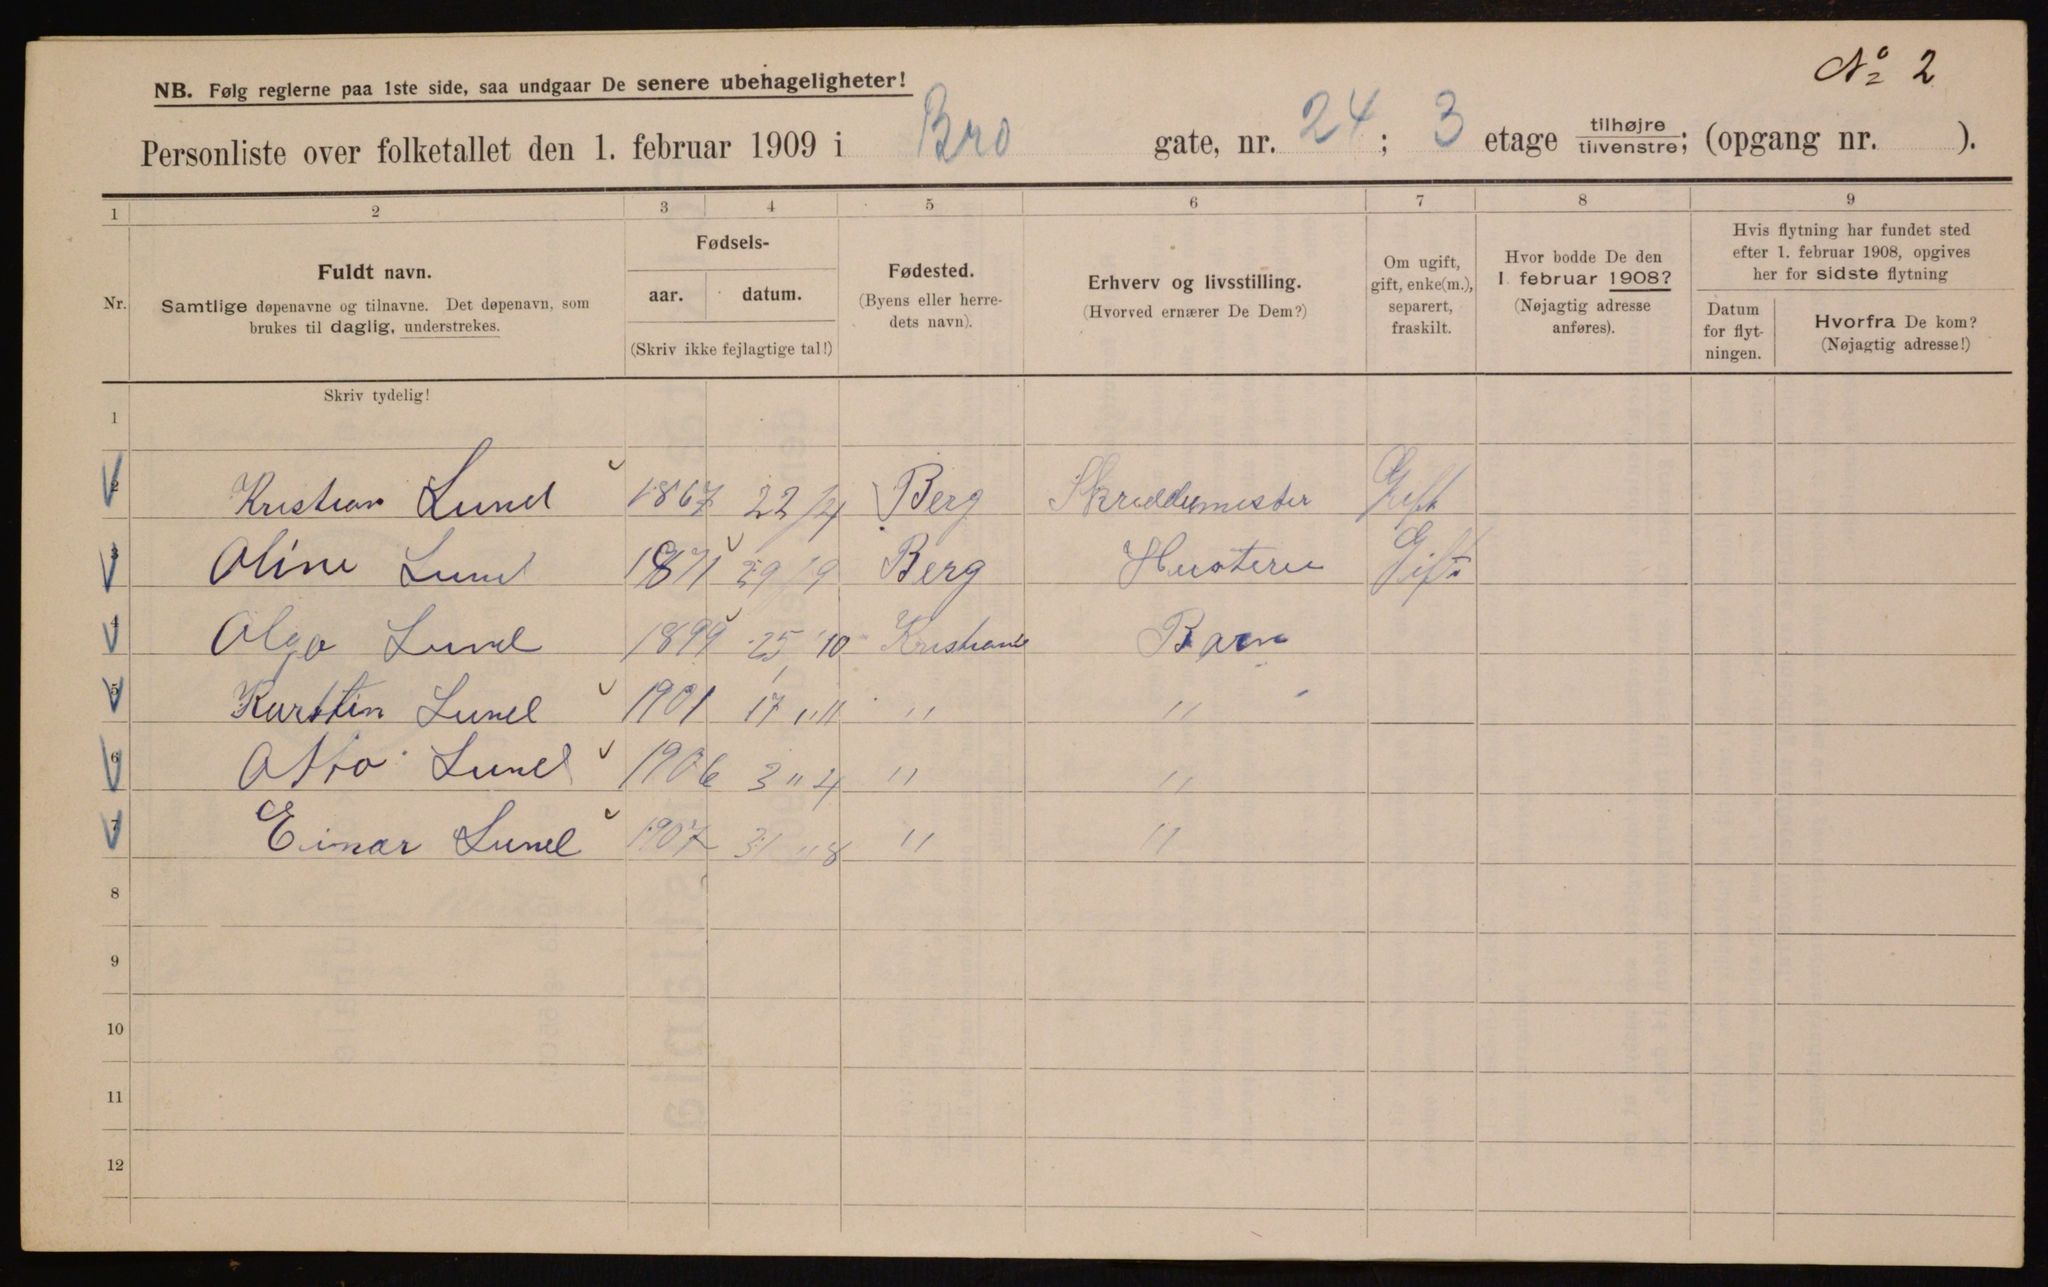 Nº 2
NB. Følg reglerne paa 1ste side, saa undgaar De senere ubehageligheter!
Personliste over folketallet den 1. februar 1909 i Bro gate, nr. 24; 3 etage tilhøjre tilvenstre; (opgang nr. ).
1 2 3 4 5 6 7 8 9
Nr.
Fuldt navn.
Samtlige døpenavne og tilnavne. Det døpenavn, som
brukes til daglig, understrekes.
Skriv tydelig!
Fødsels-
aar. datum.
(Skriv ikke fejlagtige tal!)
Fødested.
(Byens eller herre-
dets navn).
Erhverv og livsstilling.
(Hvorved ernærer De Dem?)
Om ugift,
gift, enke(m.),
separert,
fraskilt.
Hvor bodde De den
1. februar 1908?
(Nøjagtig adresse
anføres).
Hvis flytning har fundet sted
efter 1. februar 1908, opgives
her for sidste flytning
Datum
for flyt-
ningen.
Hvorfra De kom?
(Nøjagtig adresse!)
1
2 Kristian Lund 1867 22/4 Berg Skreddermester Gift
3 Oline Lund 1871 29/9 Berg Hustru Gift
4 Olga Lund 1899 25 10 Kristiania Barn
5 Karsten Lund 1901 17 " 11 " "
6 Otto Lund 1906 3 " 4 " "
7 Einar Lund 1907 31 " 8 " "
8
9
10
11
12